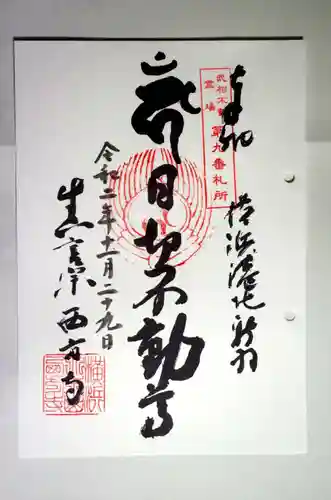 奉拝
横浜港北新羽
武相不動
霊場
第九番札所
日切不動尊
令和二年十一月二十九日
真言宗 西方寺